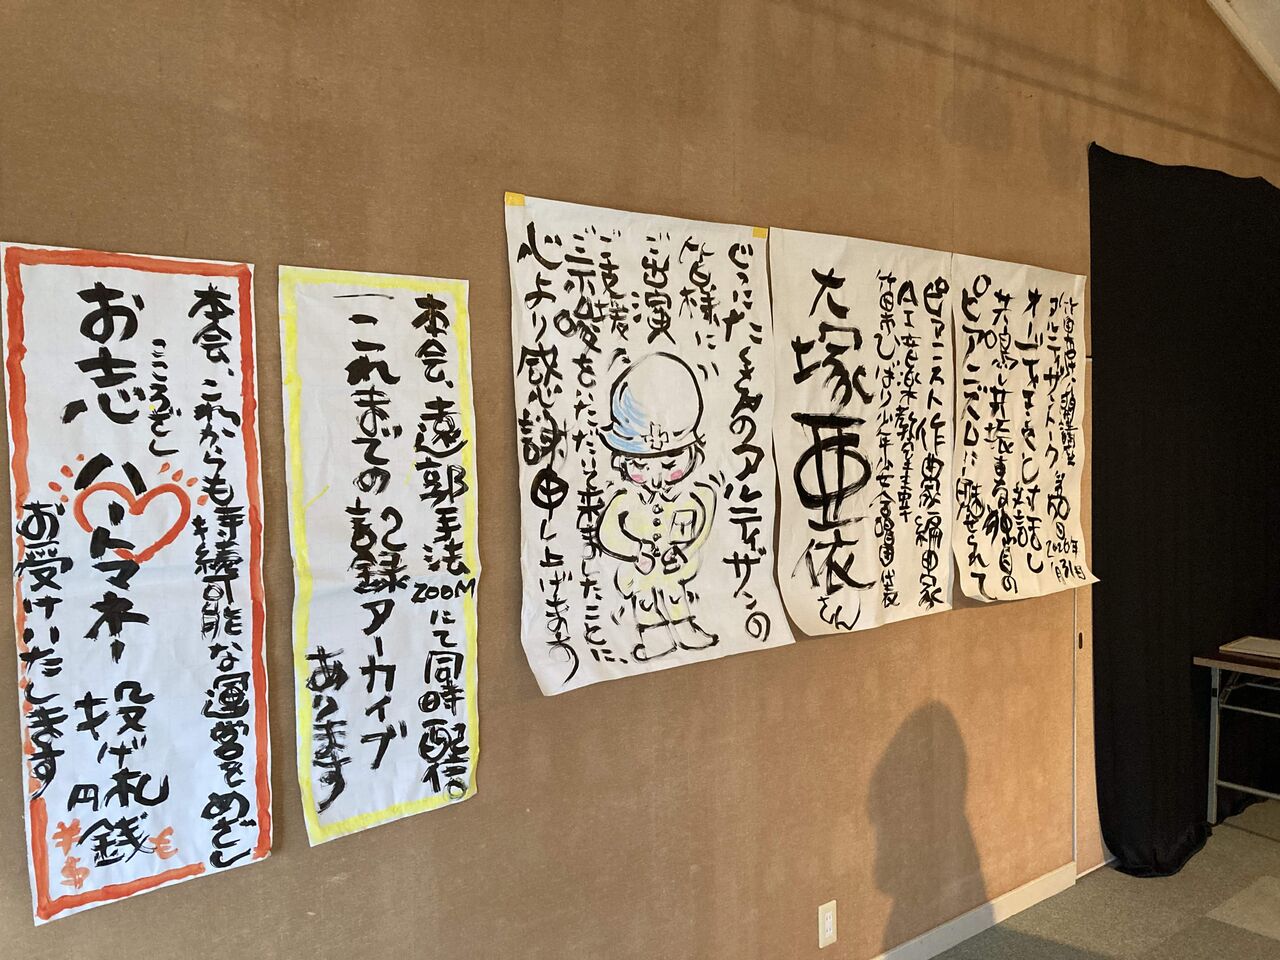 2026年
1月31日
オーバーチュアをくし対話し
共鳴し共振する独自の
ピアニズムに魅せられて
ピアニスト 作曲家 編曲家
AI音楽教室主宰
ひばり少年少女合唱団代表
大塚亜依さん
アルティザンの
皆様に
ご出演
ご支援
ご示唆をいただいて来ましたことに、
心より感謝申し上げます
本会、遠郭手法ZOOMにて同時配信。
これまでの記録アーカイブ
あります
本会、これからも持続可能な運営をめざし
お志 ハートマネー 投げ札銭
こころざし
円
¥
$
€
お受けいたします